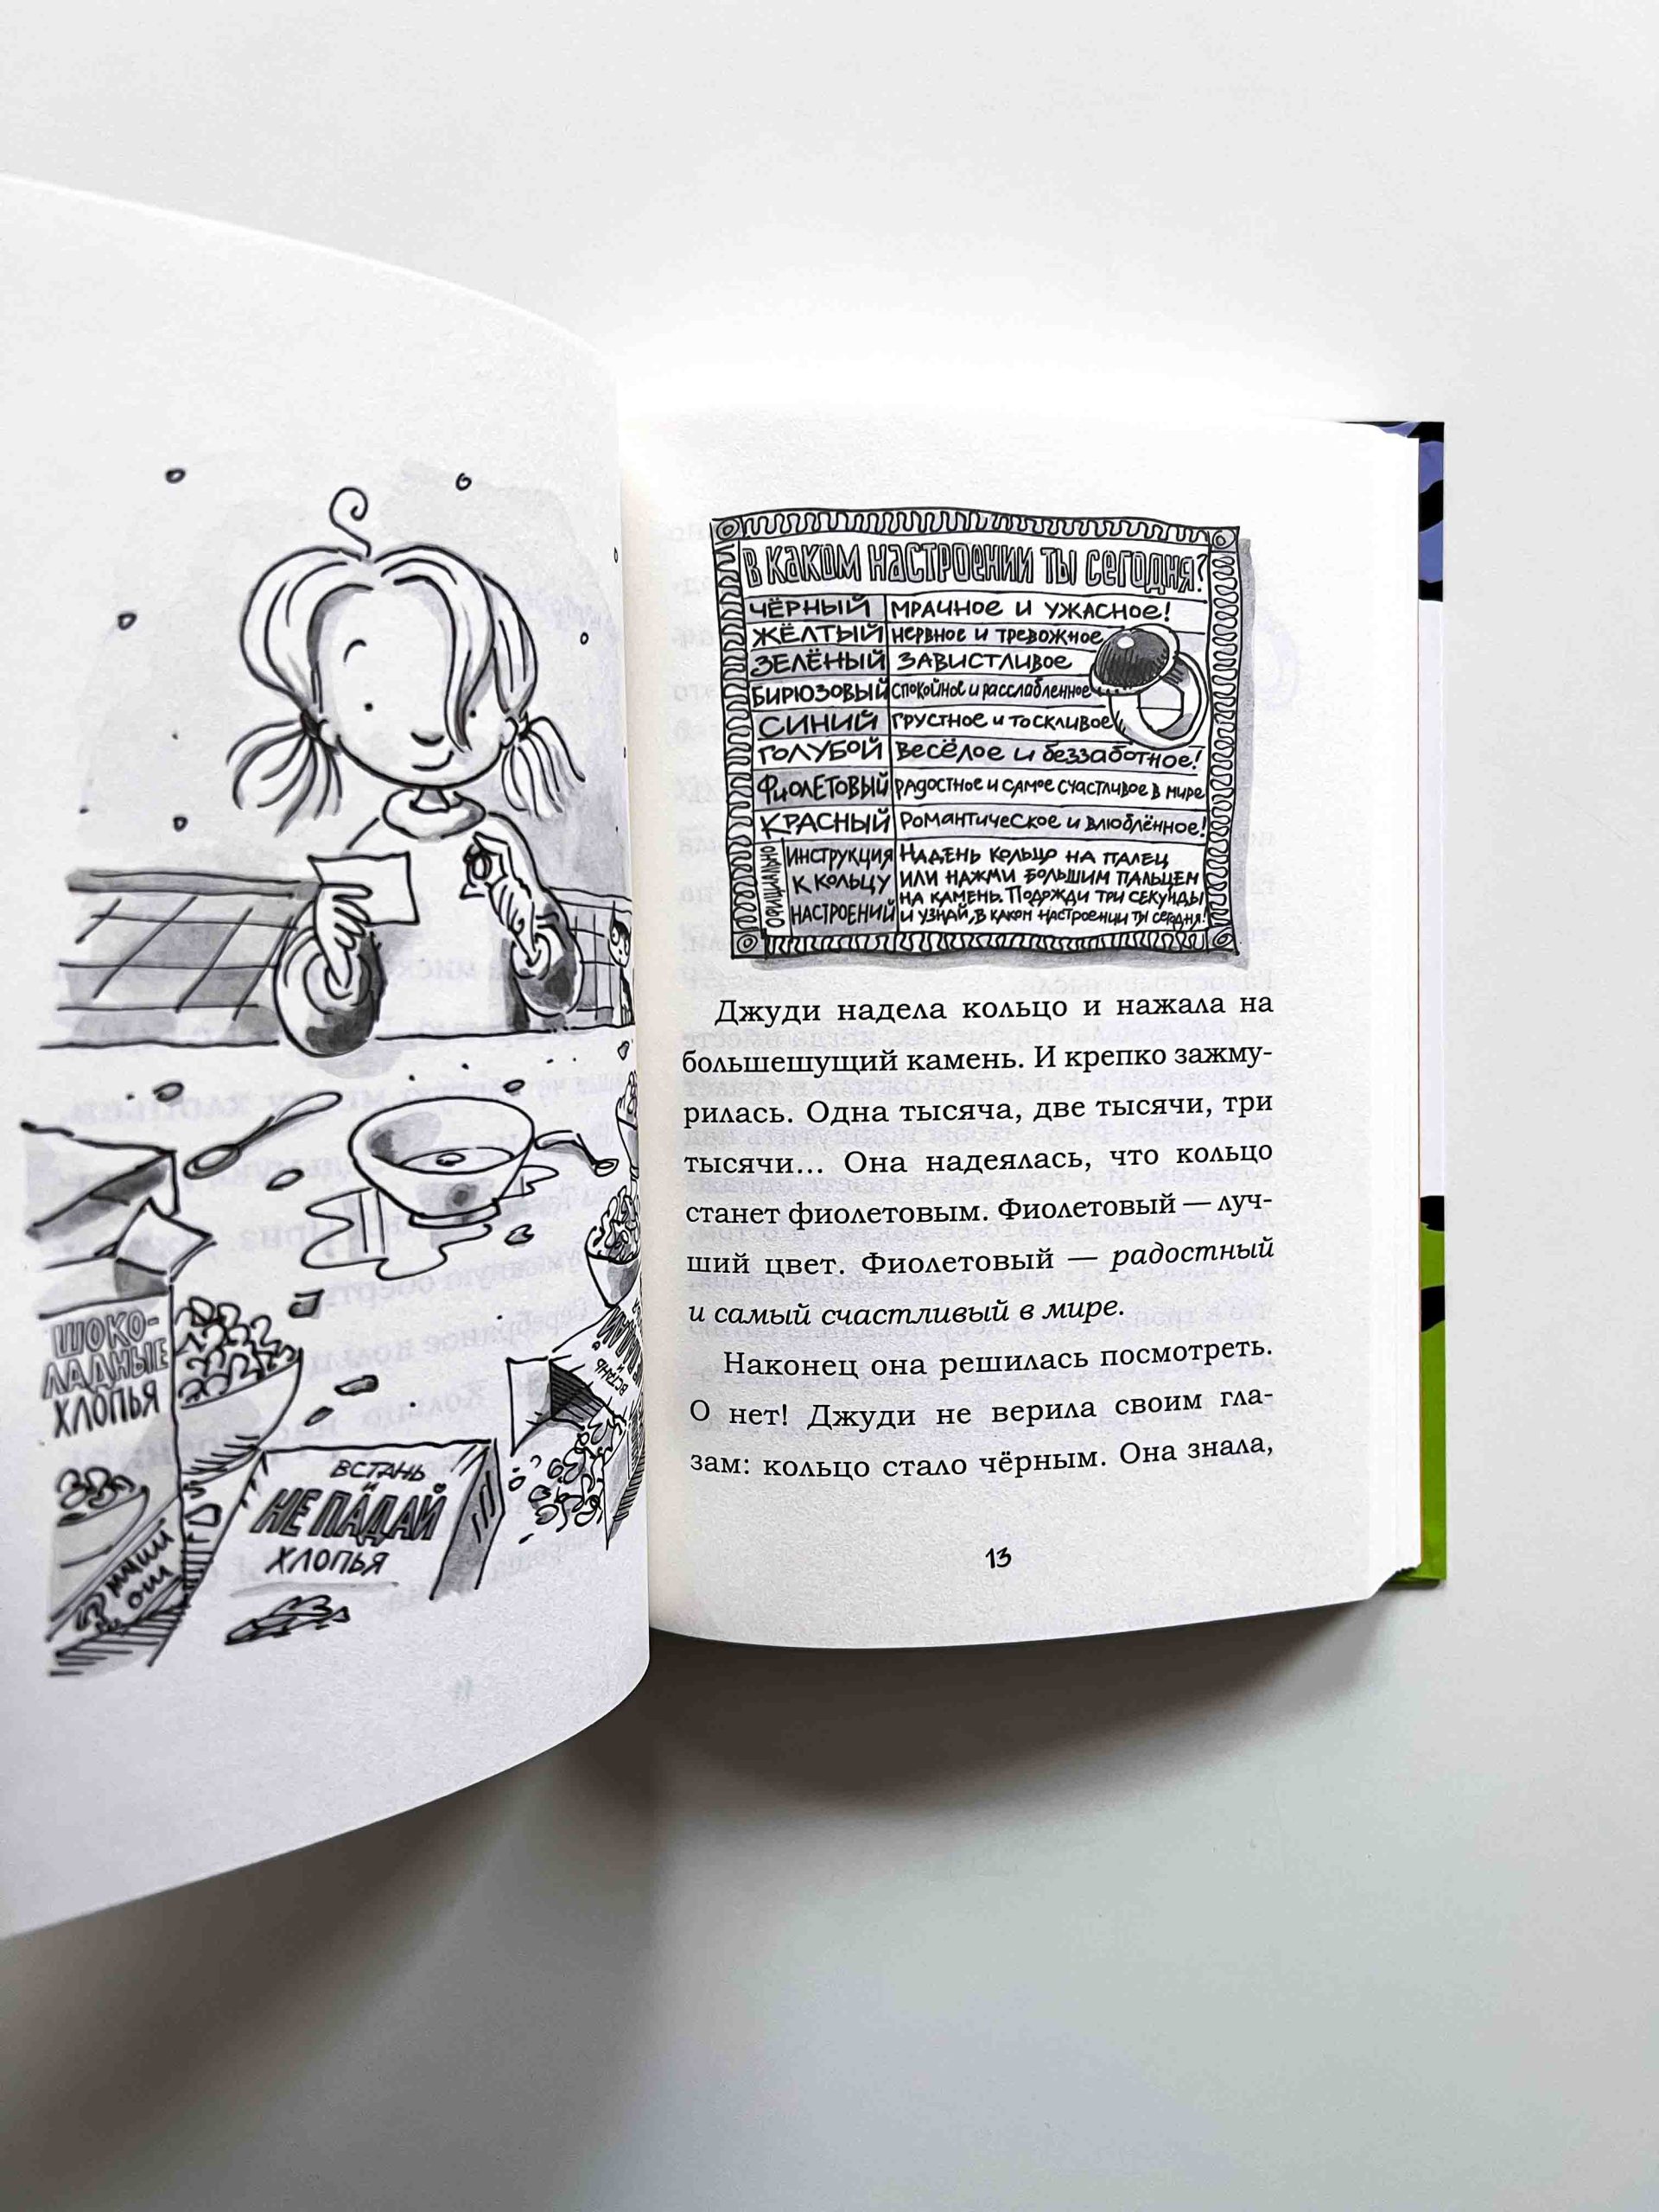 ШОКО-
ЛАДНЫЕ
ХЛОПЬЯ
ВСТАНЬ
И
НЕ ПАДАЙ
ХЛОПЬЯ
ВСТАНЬ
И
В КАКОМ НАСТРОЕНИИ ТЫ СЕГОДНЯ?
ЧЁРНЫЙ МРАЧНОЕ И УЖАСНОЕ!
ЖЁЛТЫЙ НЕРВНОЕ И ТРЕВОЖНОЕ
ЗЕЛЁНЫЙ ЗАВИСТЛИВОЕ
БИРЮЗОВЫЙ СПОКОЙНОЕ И РАССЛАБЛЕННОЕ
СИНИЙ ГРУСТНОЕ И ТОСКЛИВОЕ
ГОЛУБОЙ ВЕСЁЛОЕ И БЕЗЗАБОТНОЕ!
ФИОЛЕТОВЫЙ РАДОСТНОЕ И САМОЕ СЧАСТЛИВОЕ В МИРЕ
КРАСНЫЙ РОМАНТИЧЕСКОЕ И ВЛЮБЛЁННОЕ!
ОФИЦИАЛЬНО
ИНСТРУКЦИЯ
К КОЛЬЦУ
НАСТРОЕНИЙ
НАДЕНЬ КОЛЬЦО НА ПАЛЕЦ
ИЛИ НАЖМИ БОЛЬШИМ ПАЛЬЦЕМ
НА КАМЕНЬ. ПОДОЖДИ ТРИ СЕКУНДЫ
И УЗНАЙ, В КАКОМ НАСТРОЕНИИ ТЫ СЕГОДНЯ!
Джуди надела кольцо и нажала на
большешущий камень. И крепко зажму-
рилась. Одна тысяча, две тысячи, три
тысячи... Она надеялась, что кольцо
станет фиолетовым. Фиолетовый — луч-
ший цвет. Фиолетовый — радостный
и самый счастливый в мире.
Наконец она решилась посмотреть.
О нет! Джуди не верила своим гла-
зам: кольцо стало чёрным. Она знала,
13